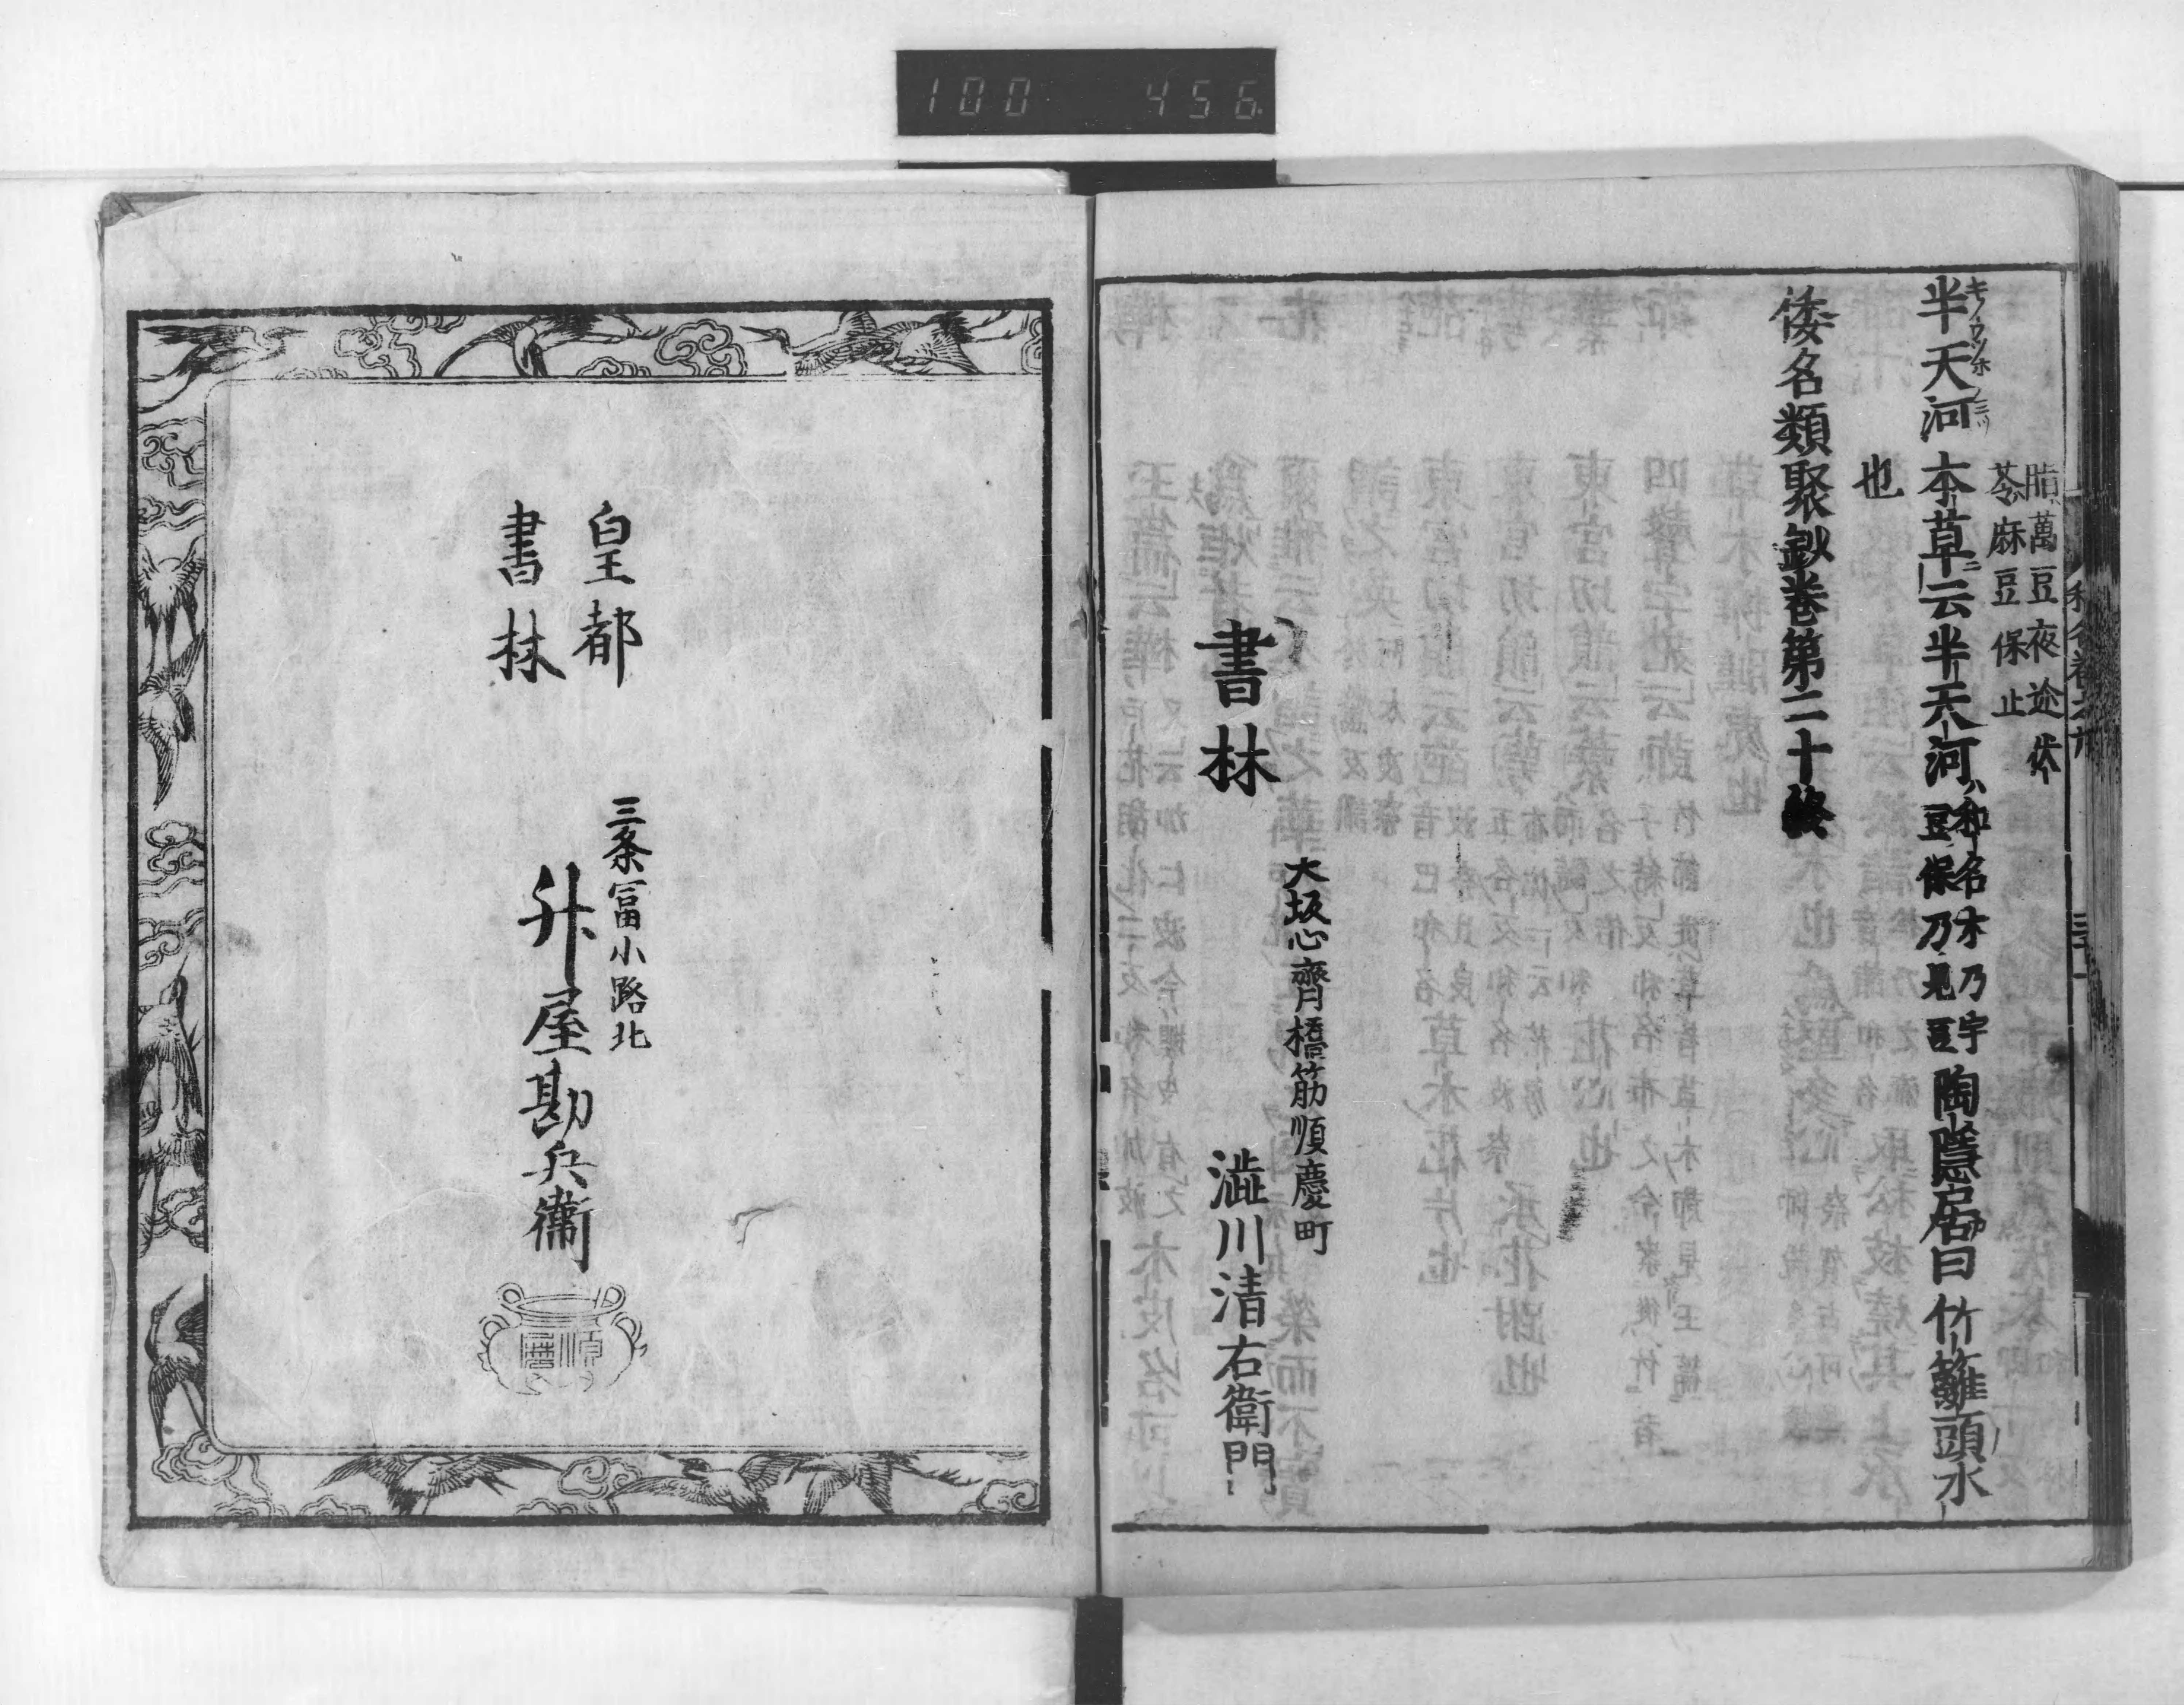 100 456
脂萬豆夜途伏
苓麻豆保止
半天河 本草云半天河和名木乃宇豆保乃見豆陶隱居曰竹籬頭水
キノウツホノミツ
也
倭名類聚鈔卷第二十終
大坂心齊橋筋順慶町
書林 澁川清右衛門
皇都
書林
三条冨小路北
升屋勘兵衞
順